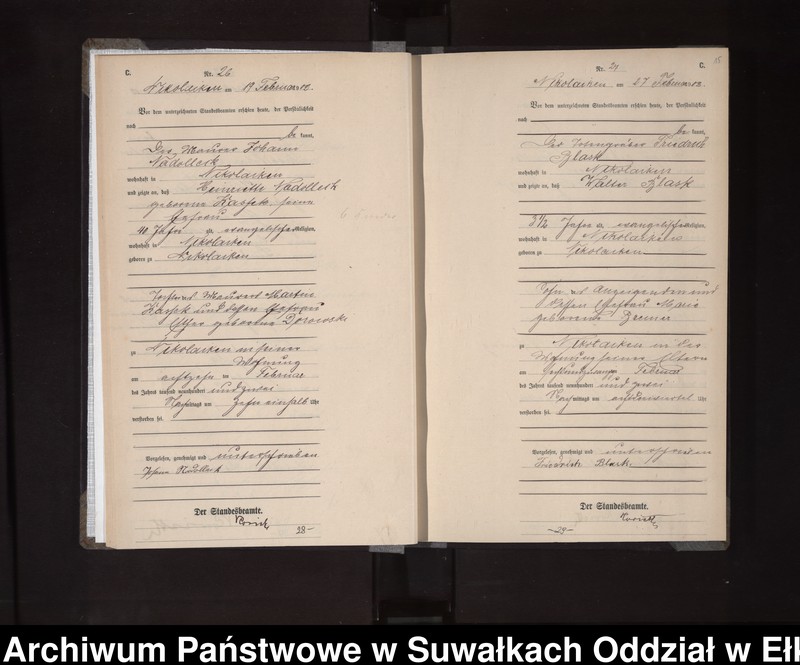 C.
Nr. 26
Nikolaiken am 19 Februar 02.
Vor dem unterzeichneten Standesbeamten erschien heute, der Persönlichkeit
nach
be kannt,
Der Maurer Johann
Nadolleck
wohnhaft in Nikolaiken
und zeigte an, daß Henriette Nadolleck
geborene Kassek, seine
Ehefrau
Jahre evangelischer Religion,
wohnhaft in Nikolaiken
geboren zu Nikolaiken
Tochter des Maurers Martin
Kassek und dessen Ehefrau
geborene
zu Nikolaiken in seiner
Wohnung
am achtzehn ten Februar
des Jahres tausend neunhundert und zwei
Nachmittags um zehn einhalb Uhr
verstorben sei.
Vorgelesen, genehmigt und unterschrieben
Johann Nadolleck
Der Standesbeamte.
-28-
15
C.
Nr. 27
Nikolaiken am 27 Februar 02.
Vor dem unterzeichneten Standesbeamten erschien heute, der Persönlichkeit
nach
be kannt,
Der Friedrich
Blask
wohnhaft in Nikolaiken
und zeigte an, daß Walter Blask
3 1/2 Jahre evangelischer Religion,
wohnhaft in Nikolaiken
geboren zu Nikolaiken
Sohn des Anzeigenden und
dessen Ehefrau Marie
geborene
zu Nikolaiken in der
Wohnung seiner Eltern
am Februar
des Jahres tausend neunhundert und zwei
Nachmittags um Uhr
verstorben sei.
Vorgelesen, genehmigt und unterschrieben
Friedrich Blask.
Der Standesbeamte.
-29-
Archiwum Państwowe w Suwałkach Oddział w Ełk